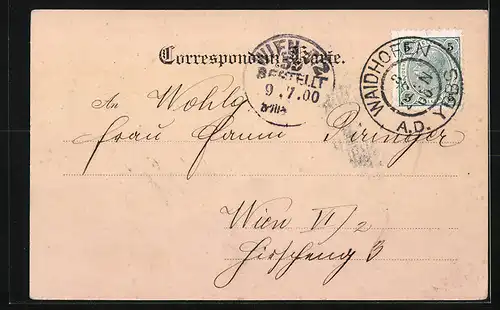 Correspondenz-Karte.
WIEN 6/2
BESTELLT
9.7.00
WAIDHOFEN
A.D. YBBS
5 5
An Wohlg.
Frau Fanni Piringer
Wien VI/2
Hirscheng 3